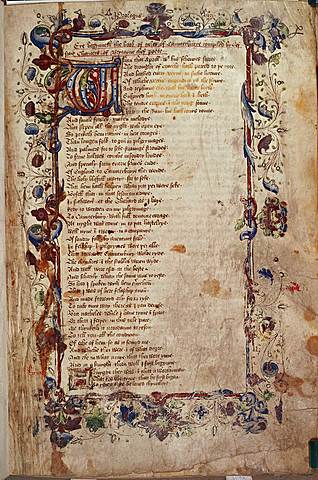 Prologus
Here begynneth the book of tales of Caunterburye compiled by
Chaucers of Brytayne chef poete
Whan that Aprill his schoures
The droughte of marche hath perced to rote
And bathed every veyne in licour
Of
And
Enspired hath in every holt &
The tendre croppes & the yong sonne
Hath in the Ram his half cours ronne
And smale foules maken melodye
That slepen all the nyght with open eye
So priketh hem nature in her corages
Than longen folk to gon in pilgrimages
And palmers for to seke straunge strondes
To ferne halowes
And specially from every schires ende
Of Engelond to Caunterbury they wende
The holy blisful martir for to seke
That hem hath holpen whan that were seke
Byfell that in that sesoun
In Suthwerk at the Tabard as I lay
Redy to wenden on my pilgrimage
To Caunterbury with full devoute corage
At nyght was come in to that hostelrye
Wel nyne & twenty in a companye
Of sondry folk
In felaschip & pilgrimes were they alle
That toward Caunterbury wolde ryde
The chambres & the stables weren wyde
And well were esed at the beste
And schortly whan the sonne was to reste
So had I spoken with hem everichon
That I was of here felaschip anon
And made forward erly for to ryse
To take our wey there as I you devyse
But natheles while I have tyme & space
Er that I ferther in this tale pace
Me thenketh it acordaunt to resoun
To tell you all the condicioun
Of eche of hem so as it semed me
And whiche they were & of what degre
And eke in what aray that they were ynne
And at a knyght than will I first bygynne
A knyght ther was & that a worthi man
That fro the tyme that he first bygan